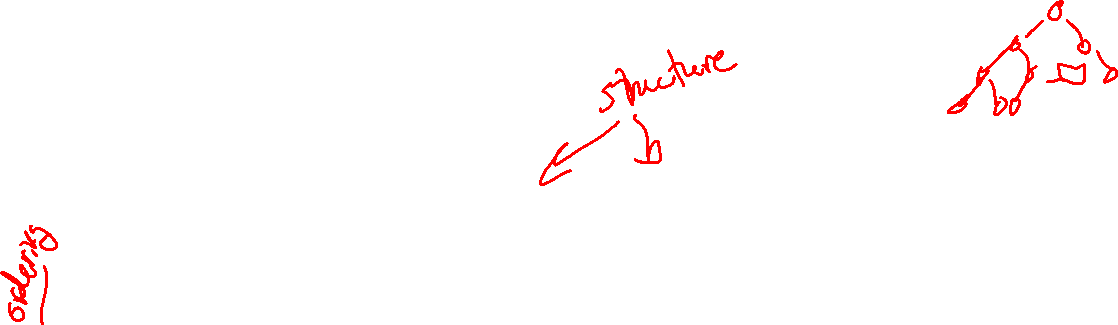 structure
ordering